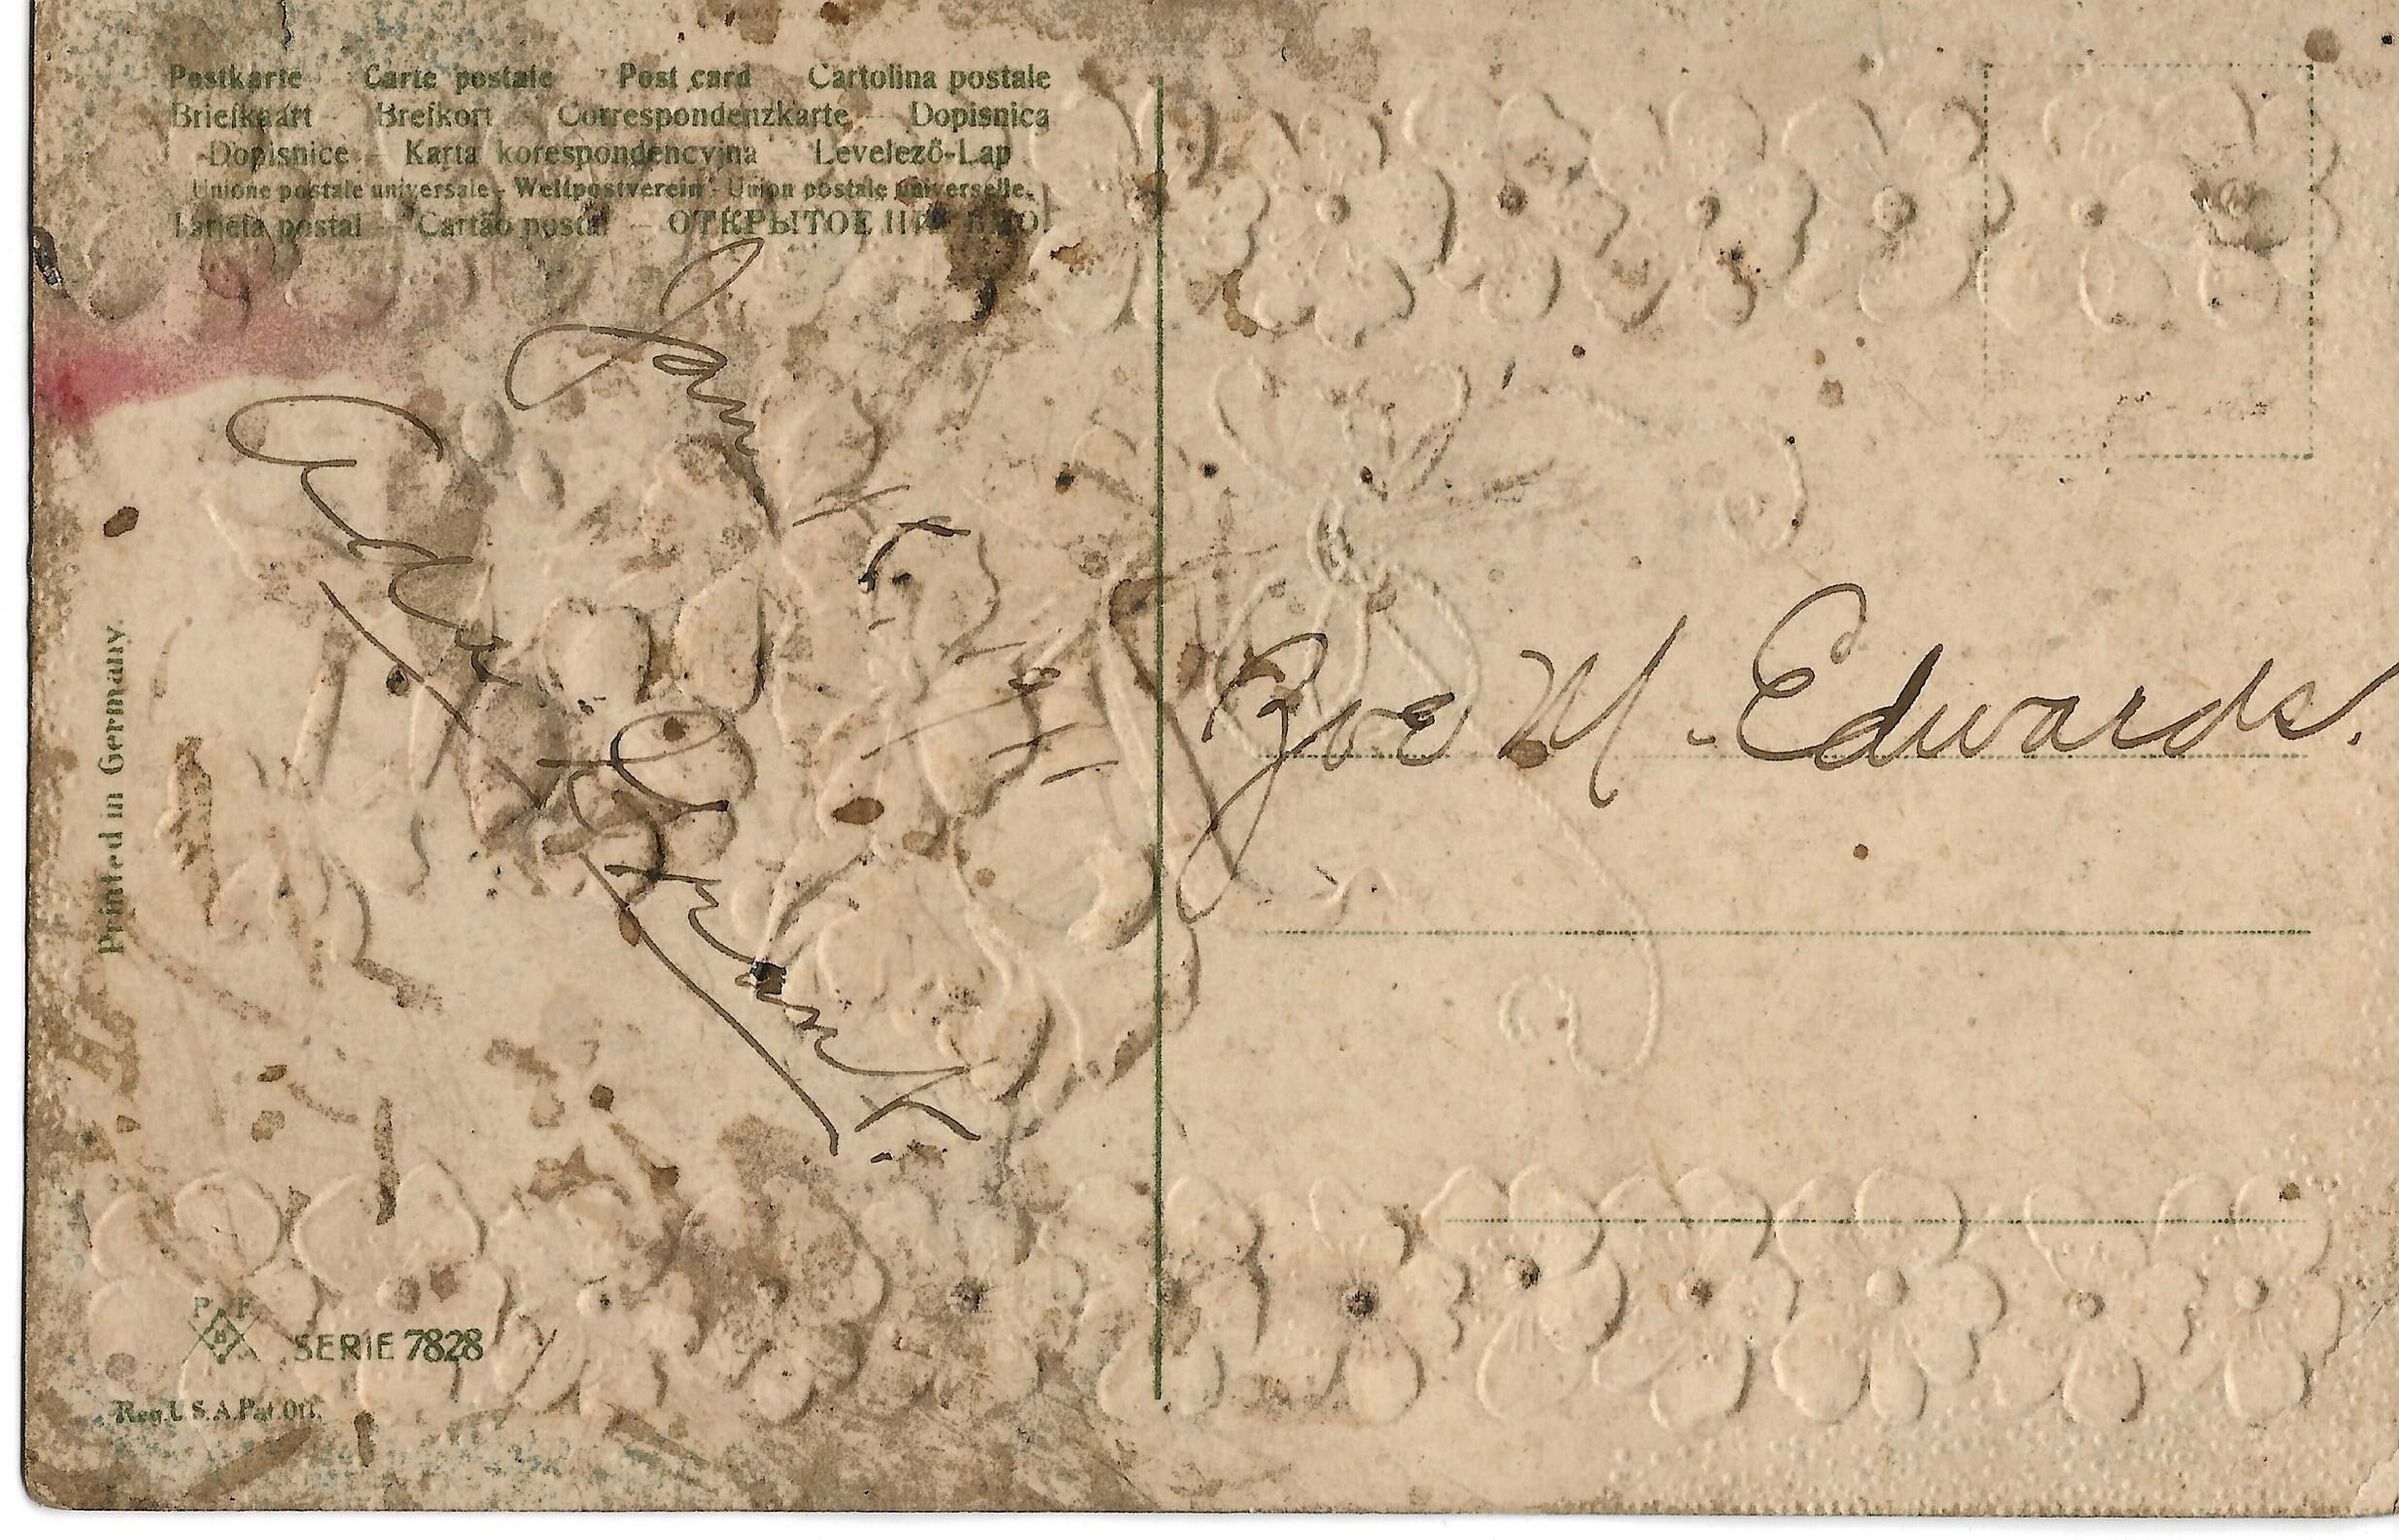 Postkarte Carte postale Post card Cartolina postale
Briefkaart Brefkort Correspondenzkarte Dopisnica
Dopisnice Karta korespondencyjna Levelező-Lap
Unione postale universale - Weltpostverein - Union postale universelle.
Tarjeta postal Cartão postal ОТКРЫТОЕ
Printed in Germany.
From
Zoe M. Edwards.
P F
B
SERIE 7828
Reg. U.S.A. Pat. Off.